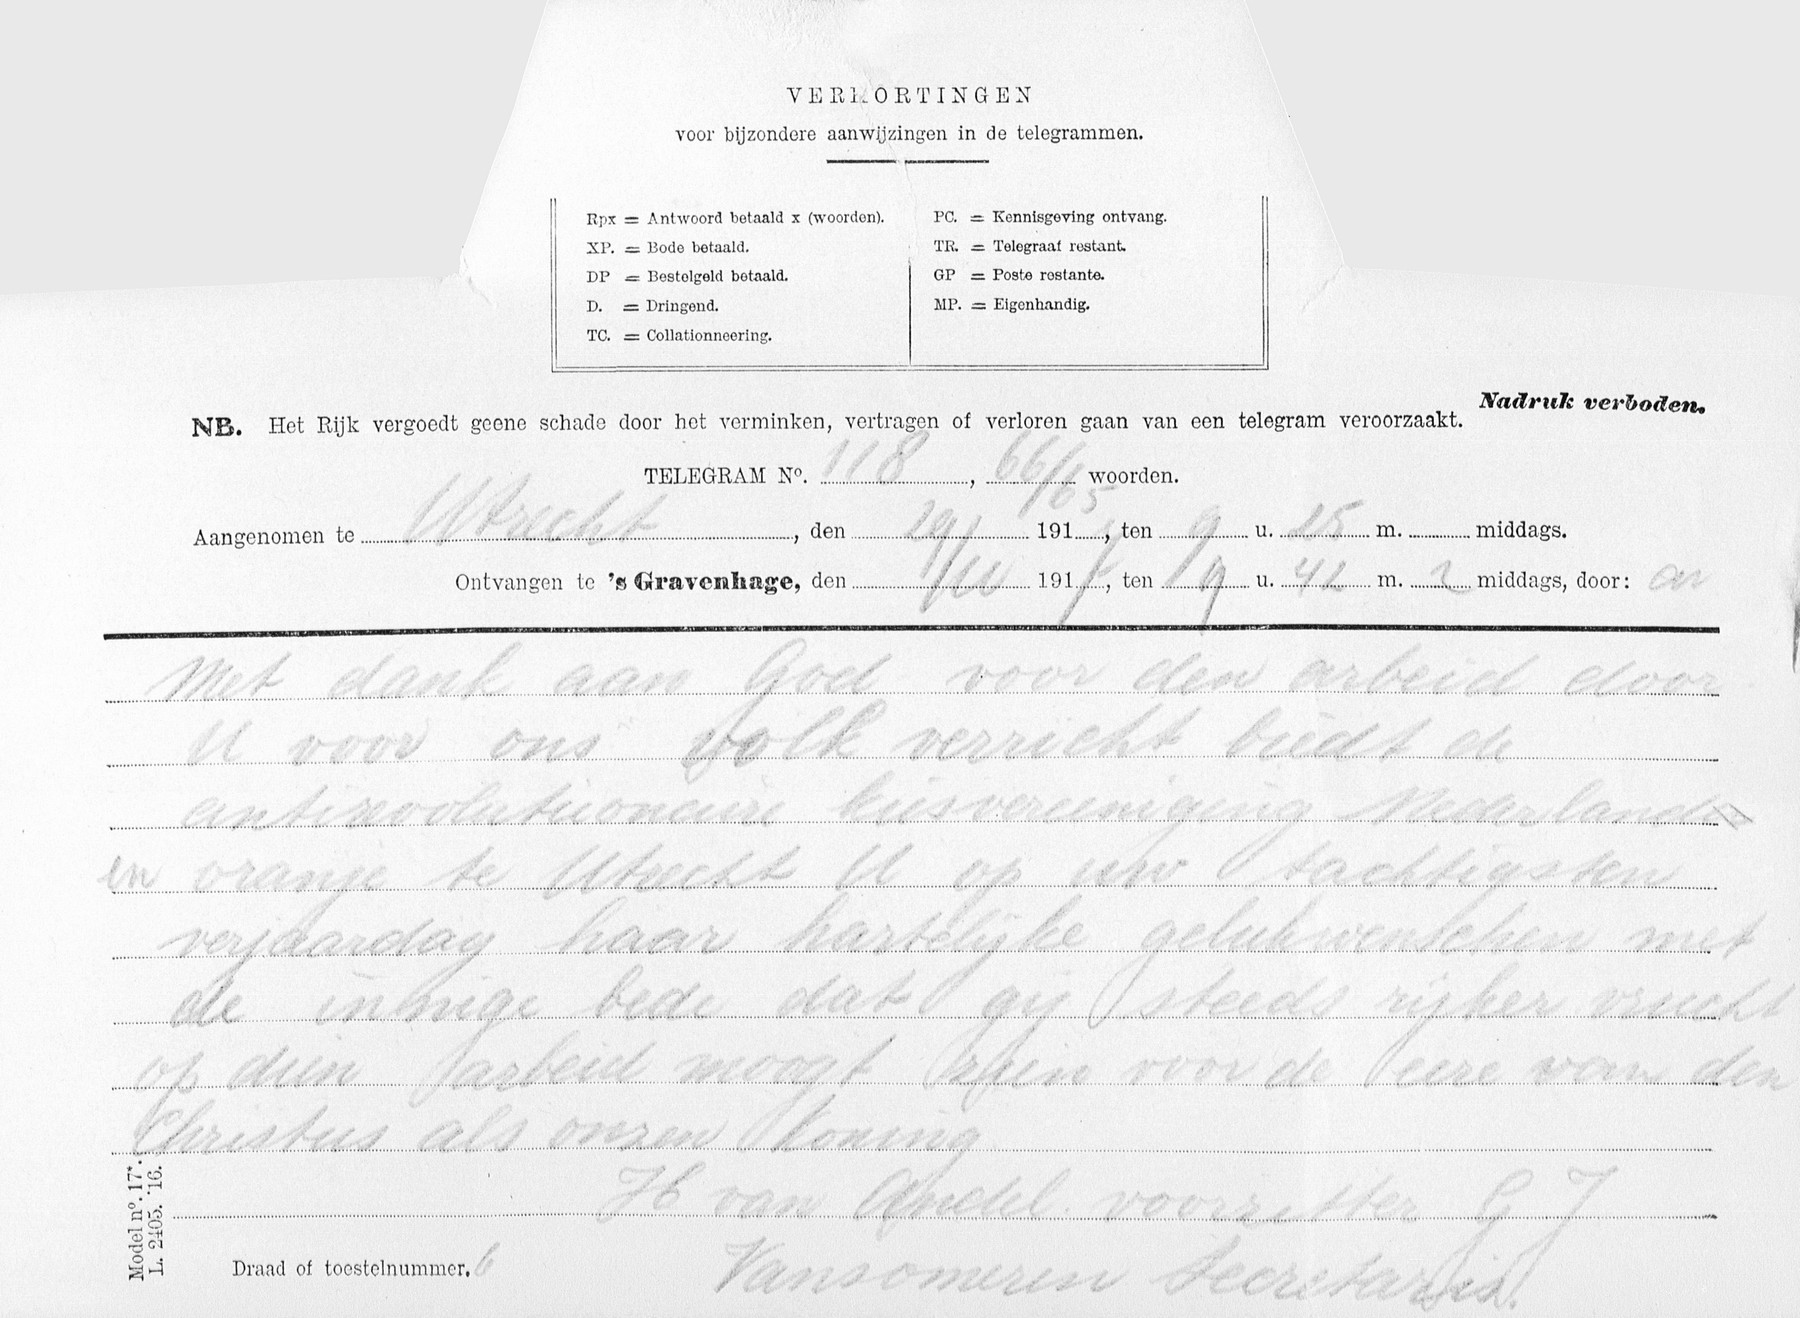 VERKORTINGEN
voor bijzondere aanwijzingen in de telegrammen.
Rpx = Antwoord betaald x (woorden).
XP. = Bode betaald.
DP = Bestelgeld betaald.
D. = Dringend.
TC. = Collationneering.
PC. = Kennisgeving ontvang.
TR. = Telegraaf restant.
GP = Poste restante.
MP. = Eigenhandig.
Nadruk verboden.
NB. Het Rijk vergoedt geene schade door het verminken, vertragen of verloren gaan van een telegram veroorzaakt.
TELEGRAM No. 118, 66/65 woorden.
Aangenomen te Utrecht, den 29/ 191, ten 9 u. 25 m. middags.
Ontvangen te 's Gravenhage, den /10 1917, ten 9 u. 42 m. 2 middags, door:
Met dank aan God voor den arbeid door
U voor ons volk verricht biedt de
antirevolutionaire kiesvereeniging Nederland
en oranje te Utrecht U op uw tachtigsten
verjaardag haar hartelijke gelukwenschen met
de innige bede dat gij steeds rijker vrucht
op dien arbeid moogt zien voor de eere van den
Christus als onzen Koning
H van Andel voorzitter G J
Vansomeren secretaris.
Model no. 17*.
L. 2405. '16.
Draad of toestelnummer. 6